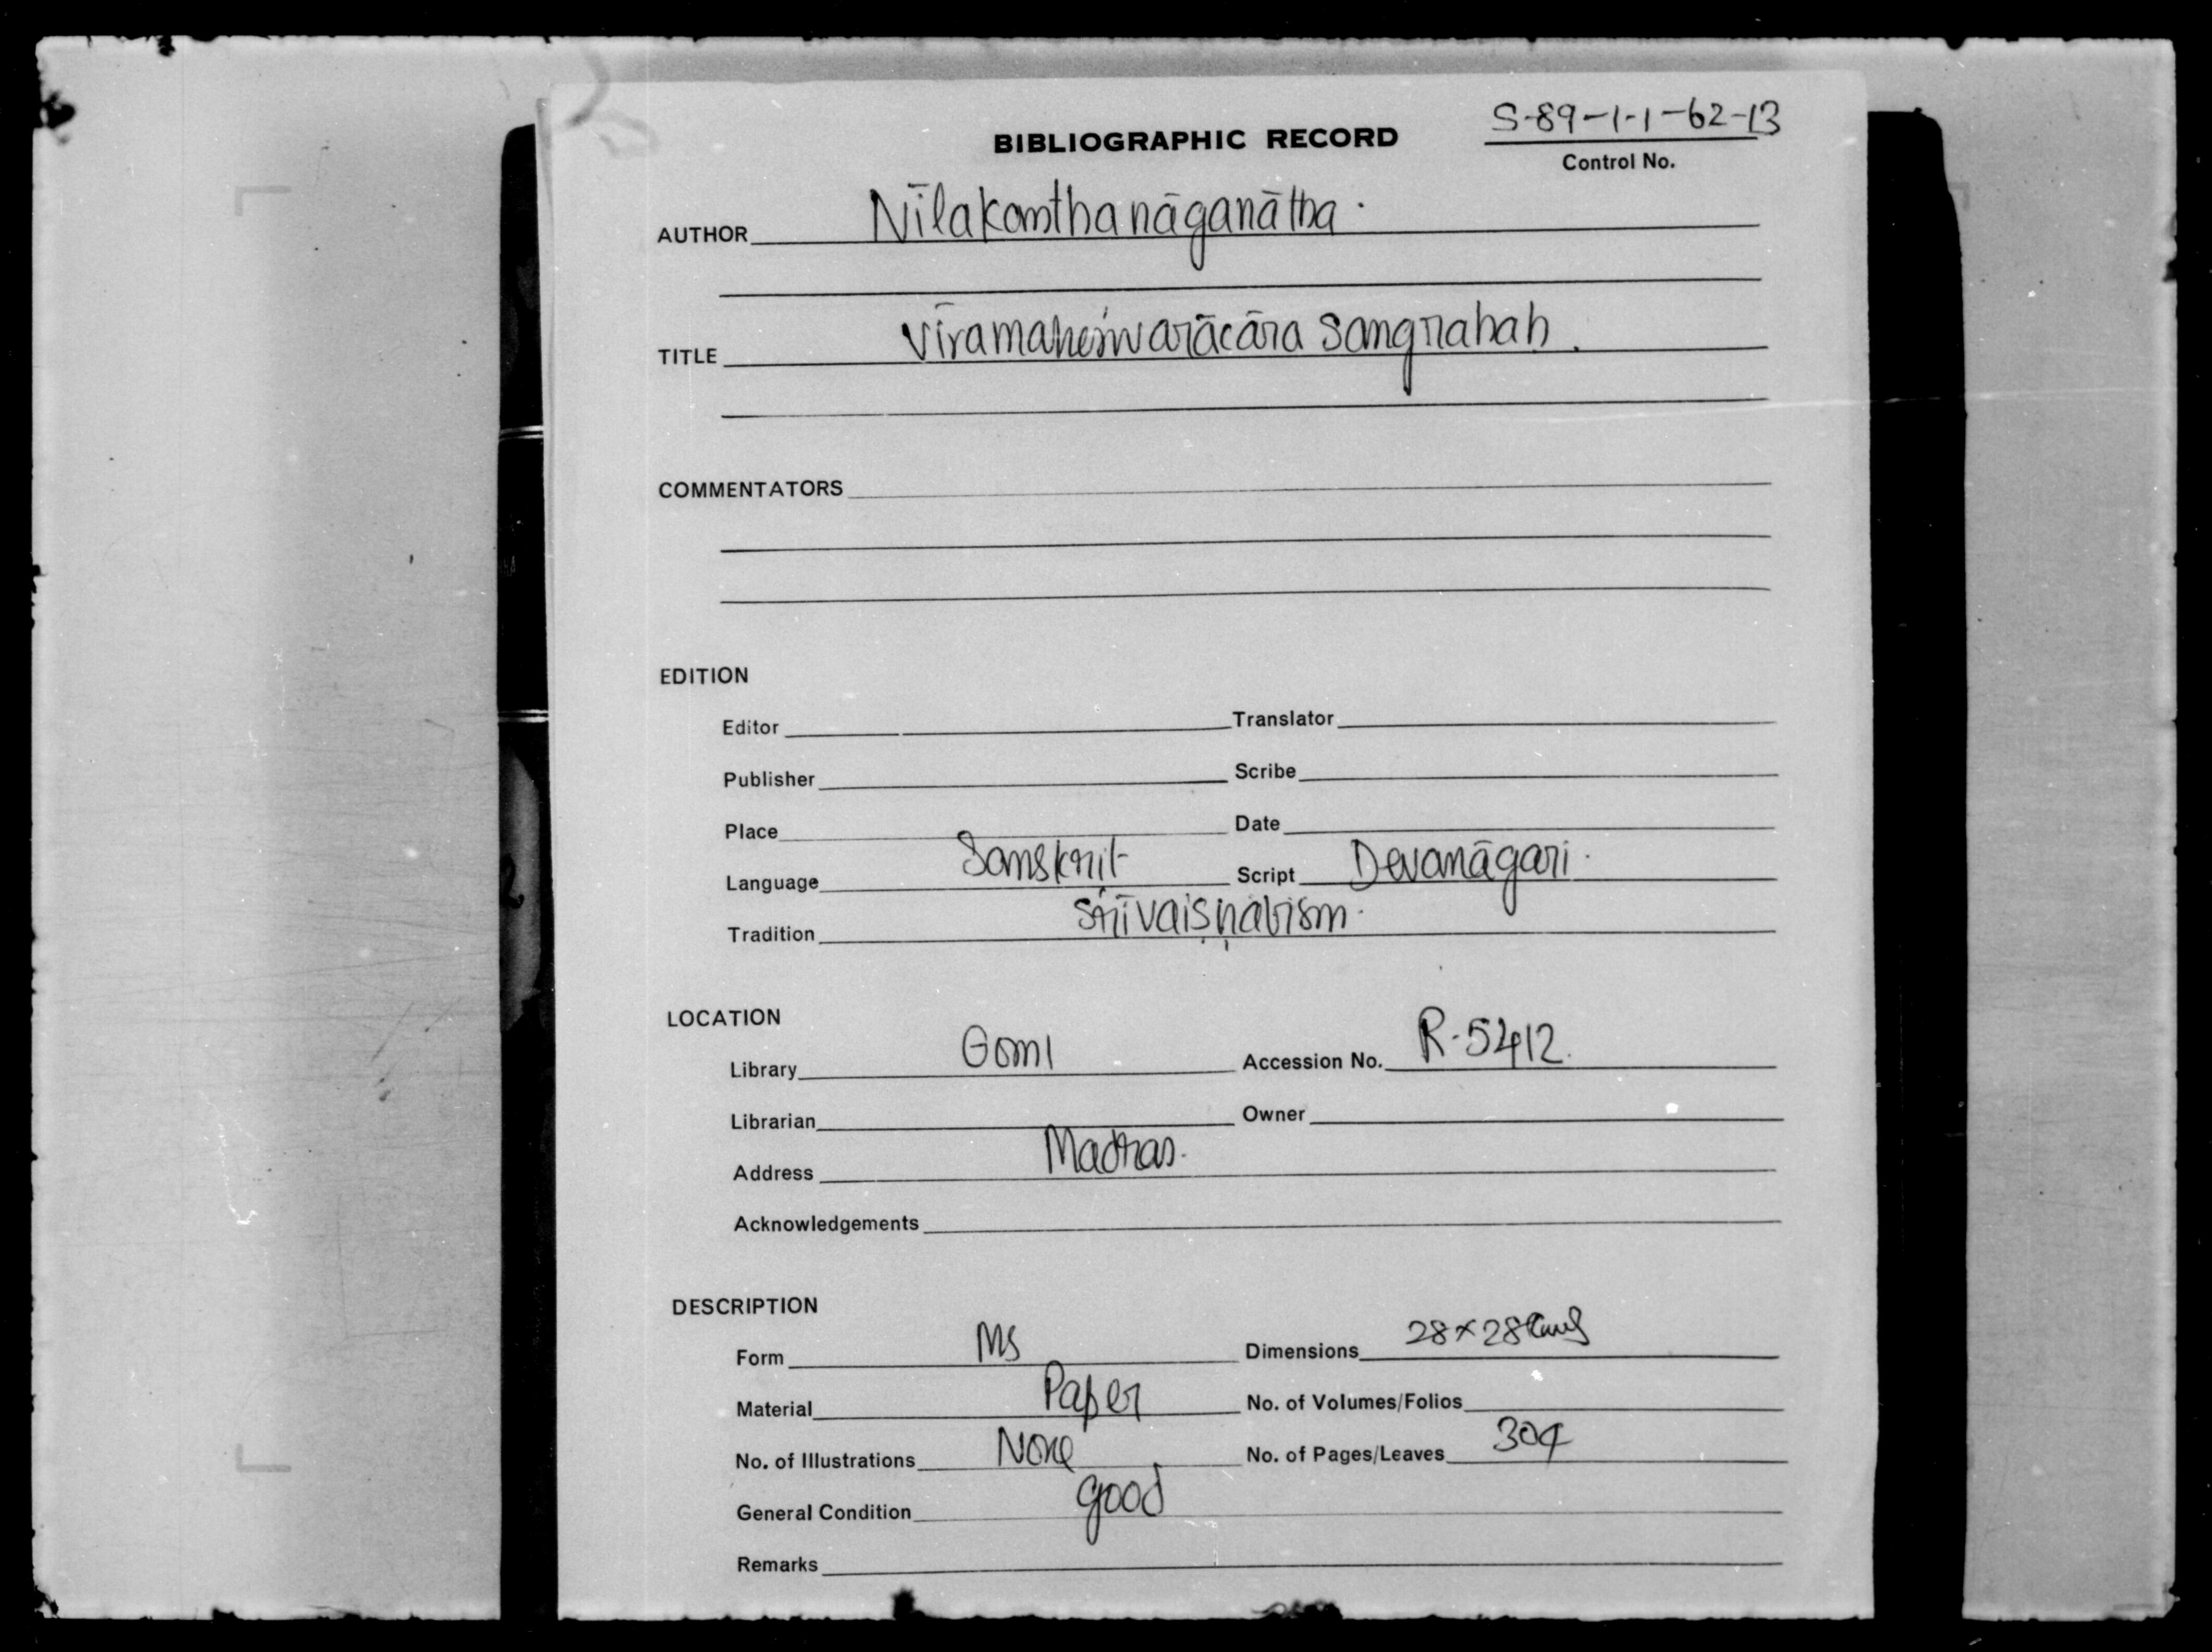 S-89-1-1-62-13
BIBLIOGRAPHIC RECORD
Control No.
AUTHOR Nīlakanthanāganātha.
TITLE Vīramaheśwarācāra Sangrahaḥ.
COMMENTATORS
EDITION
Editor Translator
Publisher Scribe
Place Date
Language Sanskrit Script Devanāgari.
Tradition Śrīvaiṣṇavism.
LOCATION
Library Goml Accession No. R-5412.
Librarian Owner
Address Madras.
Acknowledgements
DESCRIPTION
Form MS Dimensions 28×28 cms
Material Paper No. of Volumes/Folios
No. of Illustrations None No. of Pages/Leaves 304
General Condition good
Remarks